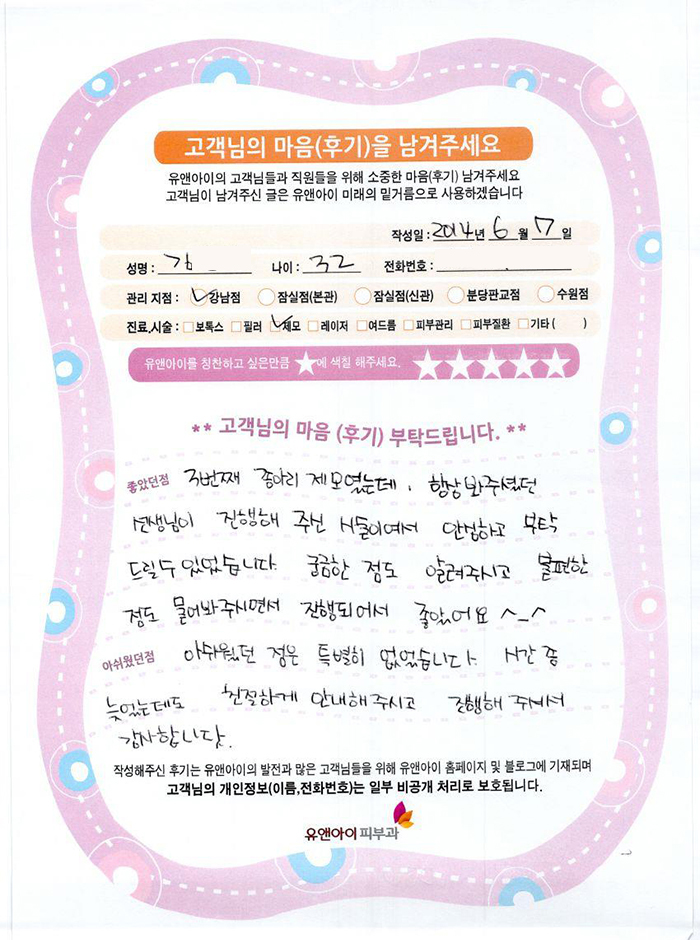 고객님의 마음(후기)을 남겨주세요
유앤아이의 고객님들과 직원들을 위해 소중한 마음(후기) 남겨주세요
고객님이 남겨주신 글은 유앤아이 미래의 밑거름으로 사용하겠습니다
작성일 : 2014년 6 월 7 일
성명 : 김 나이 : 32 전화번호 :
관리 지점 : 강남점 잠실점(본관) 잠실점(신관) 분당판교점 수원점
진료,시술 : 보톡스 필러 제모 레이저 여드름 피부관리 피부질환 기타 ( )
유앤아이를 칭찬하고 싶은만큼 ★에 색칠 해주세요. ★★★★★
** 고객님의 마음 (후기) 부탁드립니다. **
좋았던점 3번째 종아리 제모였는데, 항상 봐주셨던
선생님이 진행해 주신 시술이여서 안심하고 부탁
드릴수 있었습니다. 궁금한 점도 알려주시고 불편한
점도 물어봐주시면서 진행되어서 좋았어요 ^_^
아쉬웠던점 아쉬웠던 점은 특별히 없었습니다. 시간 좀
늦었는데도 친절하게 안내해주시고 진행해 주셔서
감사합니다.
작성해주신 후기는 유앤아이의 발전과 많은 고객님들을 위해 유앤아이 홈페이지 및 블로그에 기재되며
고객님의 개인정보(이름,전화번호)는 일부 비공개 처리로 보호됩니다.
유앤아이피부과